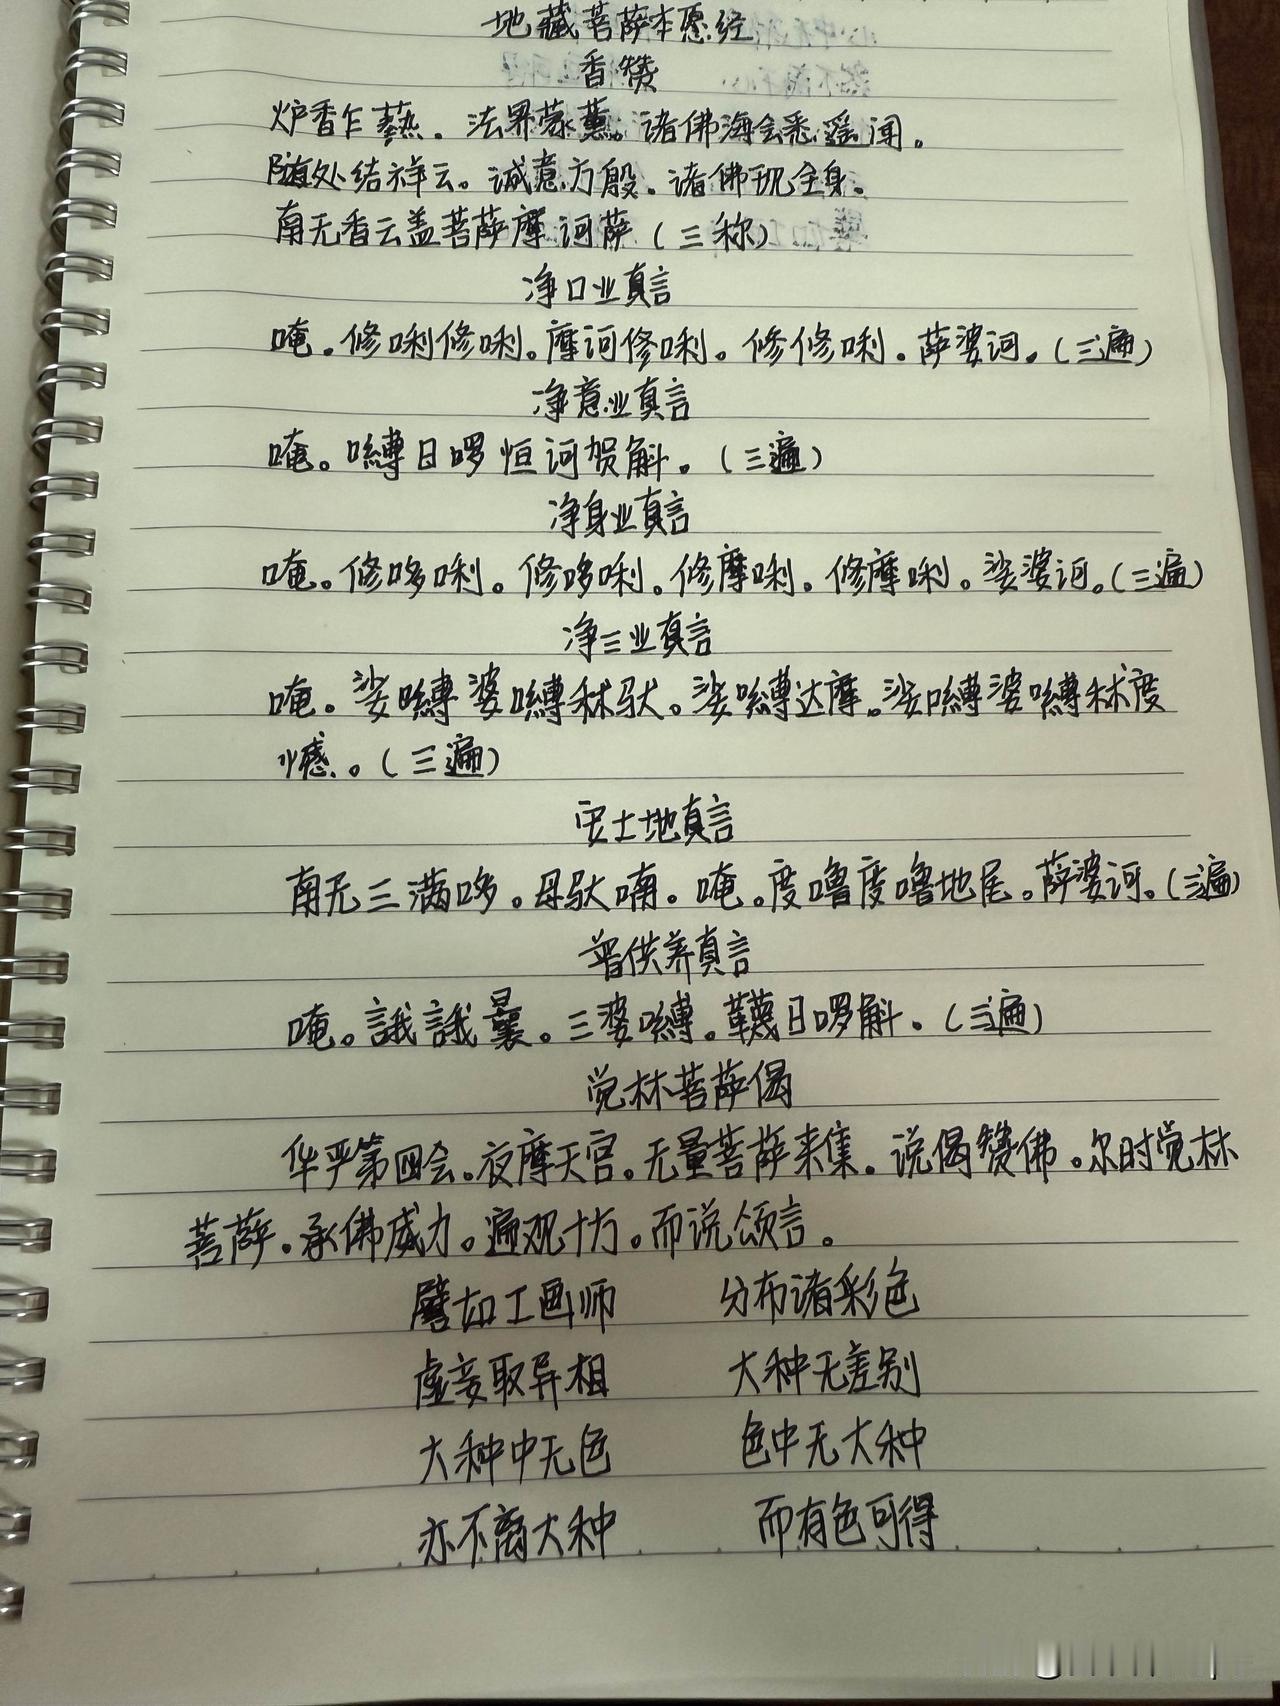 地藏菩萨本愿经
香赞
炉香乍爇。法界蒙薰。诸佛海会悉遥闻。
随处结祥云。诚意方殷。诸佛现全身。
南无香云盖菩萨摩诃萨(三称)
净口业真言
唵。修唎修唎。摩诃修唎。修修唎。萨婆诃。(三遍)
净意业真言
唵。嚩日啰怛诃贺斛。(三遍)
净身业真言
唵。修哆唎。修哆唎。修摩唎。修摩唎。娑婆诃。(三遍)
净三业真言
唵。娑嚩婆嚩秫驮。娑嚩达摩。娑嚩婆嚩秫度
憾。(三遍)
安土地真言
南无三满哆。母驮喃。唵。度噜度噜地尾。萨婆诃。(三遍)
普供养真言
唵。誐誐曩。三婆嚩。韈日啰斛。(三遍)
觉林菩萨偈
华严第四会。夜摩天宫。无量菩萨来集。说偈赞佛。尔时觉林
菩萨。承佛威力。遍观十方。而说颂言。
譬如工画师 分布诸彩色
虚妄取异相 大种无差别
大种中无色 色中无大种
亦不离大种 而有色可得